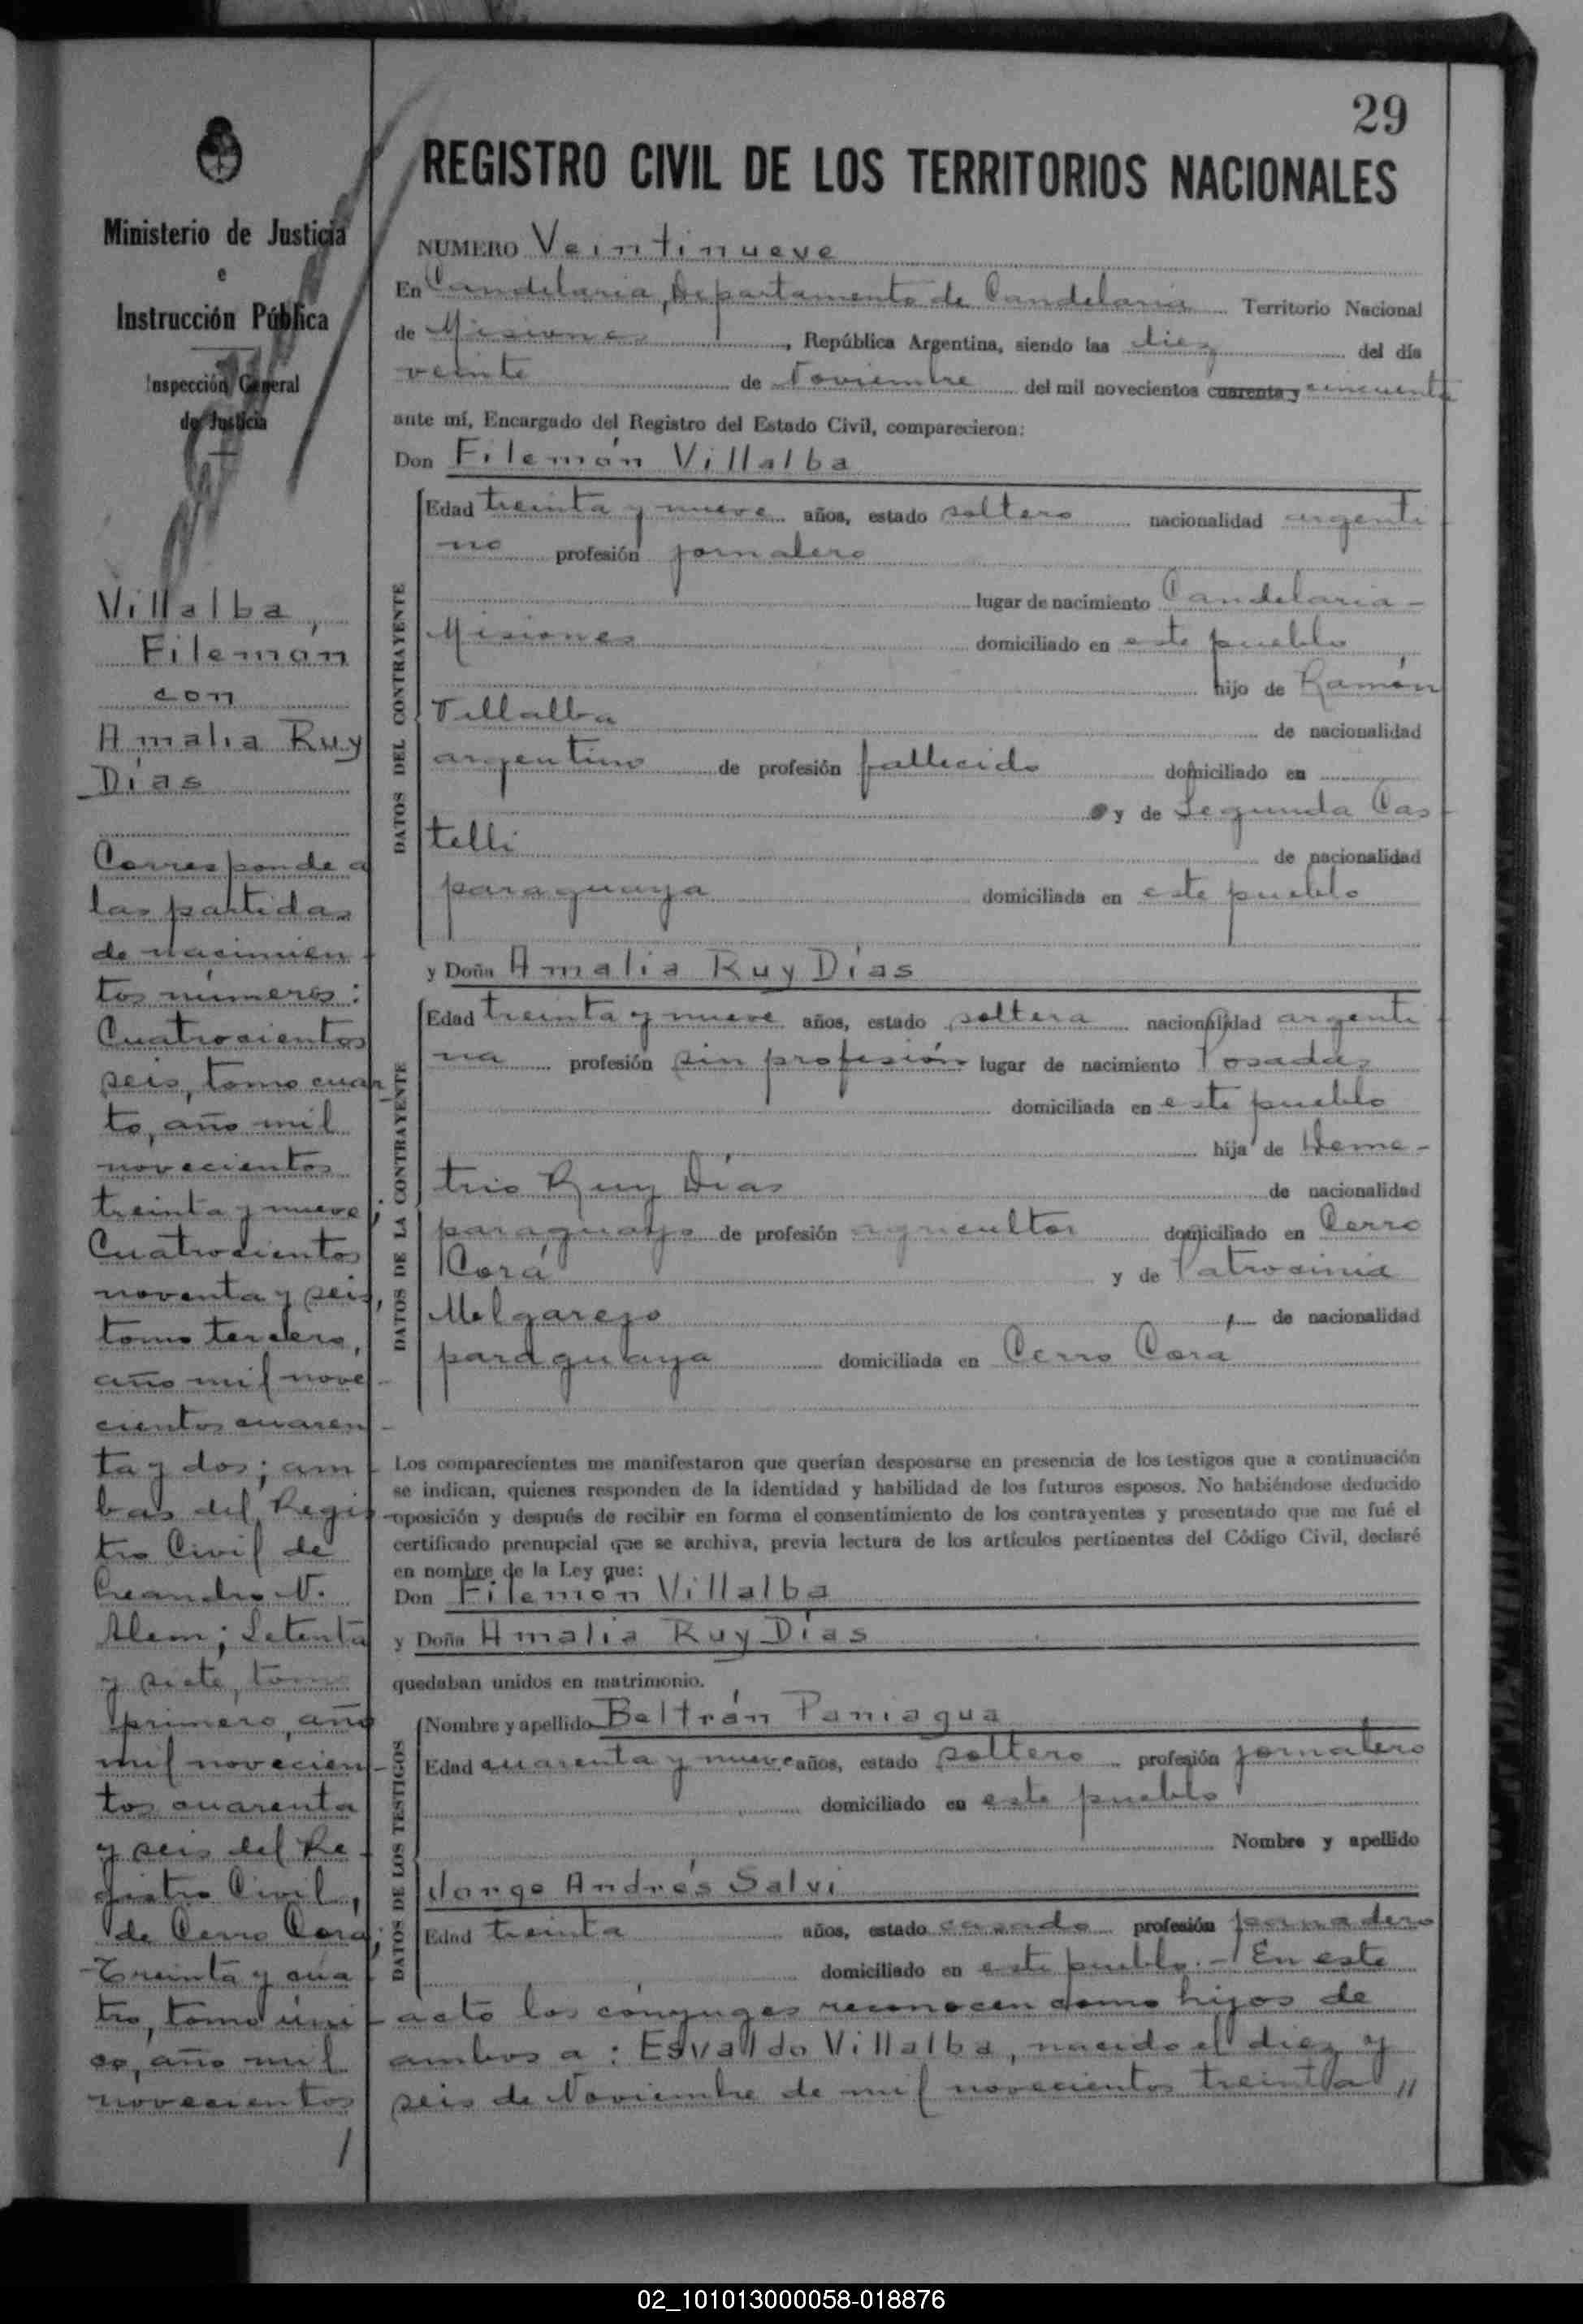 29
Ministerio de Justicia
e
Instrucción Pública
Inspección General
de Justicia
Villalba,
Filemón
con
Amalia Ruy
Días
Corresponde a
las partidas
de nacimien-
tos números:
Cuatrocientos
seis, tomo cuar
to, año mil
novecientos
treinta y nueve;
Cuatrocientos
noventa y seis,
tomo tercero,
año mil nove-
cientos cuaren-
ta y dos; am-
bas del Regis-
tro Civil de
Leandro N.
Alem; Setenta
y siete, tomo
primero, año
mil novecien-
tos cuarenta
y seis del Re-
gistro Civil,
de Cerro Corá;
Treinta y cua-
tro, tomo úni-
co, año mil
novecientos
REGISTRO CIVIL DE LOS TERRITORIOS NACIONALES
NUMERO Veintinueve
En Candelaria, Departamento de Candelaria Territorio Nacional
de Misiones, República Argentina, siendo las diez del día
veinte de Noviembre del mil novecientos cuarenta y cincuenta
ante mí, Encargado del Registro del Estado Civil, comparecieron:
Don Filemón Villalba
DATOS DEL CONTRAYENTE
Edad treinta y nueve años, estado soltero nacionalidad argenti-
no profesión jornalero
lugar de nacimiento Candelaria-
Misiones domiciliado en este pueblo
hijo de Ramón
Villalba de nacionalidad
argentino de profesión fallecido domiciliado en
y de Segunda Cas-
telli de nacionalidad
paraguaya domiciliada en este pueblo
y Doña Amalia Ruy Días
DATOS DE LA CONTRAYENTE
Edad treinta y nueve años, estado soltera nacionalidad argenti-
na profesión sin profesión lugar de nacimiento Posadas
domiciliada en este pueblo
hija de Deme-
trio Ruy Días de nacionalidad
paraguayo de profesión agricultor domiciliado en Cerro
Corá y de Patrocinia
Melgarejo, de nacionalidad
paraguaya domiciliada en Cerro Corá
Los comparecientes me manifestaron que querían desposarse en presencia de los testigos que a continuación
se indican, quienes responden de la identidad y habilidad de los futuros esposos. No habiéndose deducido
oposición y después de recibir en forma el consentimiento de los contrayentes y presentado que me fué el
certificado prenupcial que se archiva, previa lectura de los artículos pertinentes del Código Civil, declaré
en nombre de la Ley que:
Don Filemón Villalba
y Doña Amalia Ruy Días
quedaban unidos en matrimonio.
DATOS DE LOS TESTIGOS
Nombre y apellido Beltrán Paniagua
Edad cuarenta y nueve años, estado soltero profesión jornalero
domiciliado en este pueblo
Nombre y apellido
Jorge Andrés Salvi
Edad treinta años, estado casado profesión panadero
domiciliado en este pueblo.- En este
acto los cónyuges reconocen como hijos de
ambos a: Esvaldo Villalba, nacido el diez y
seis de Noviembre de mil novecientos treinta //
02_101013000058-018876